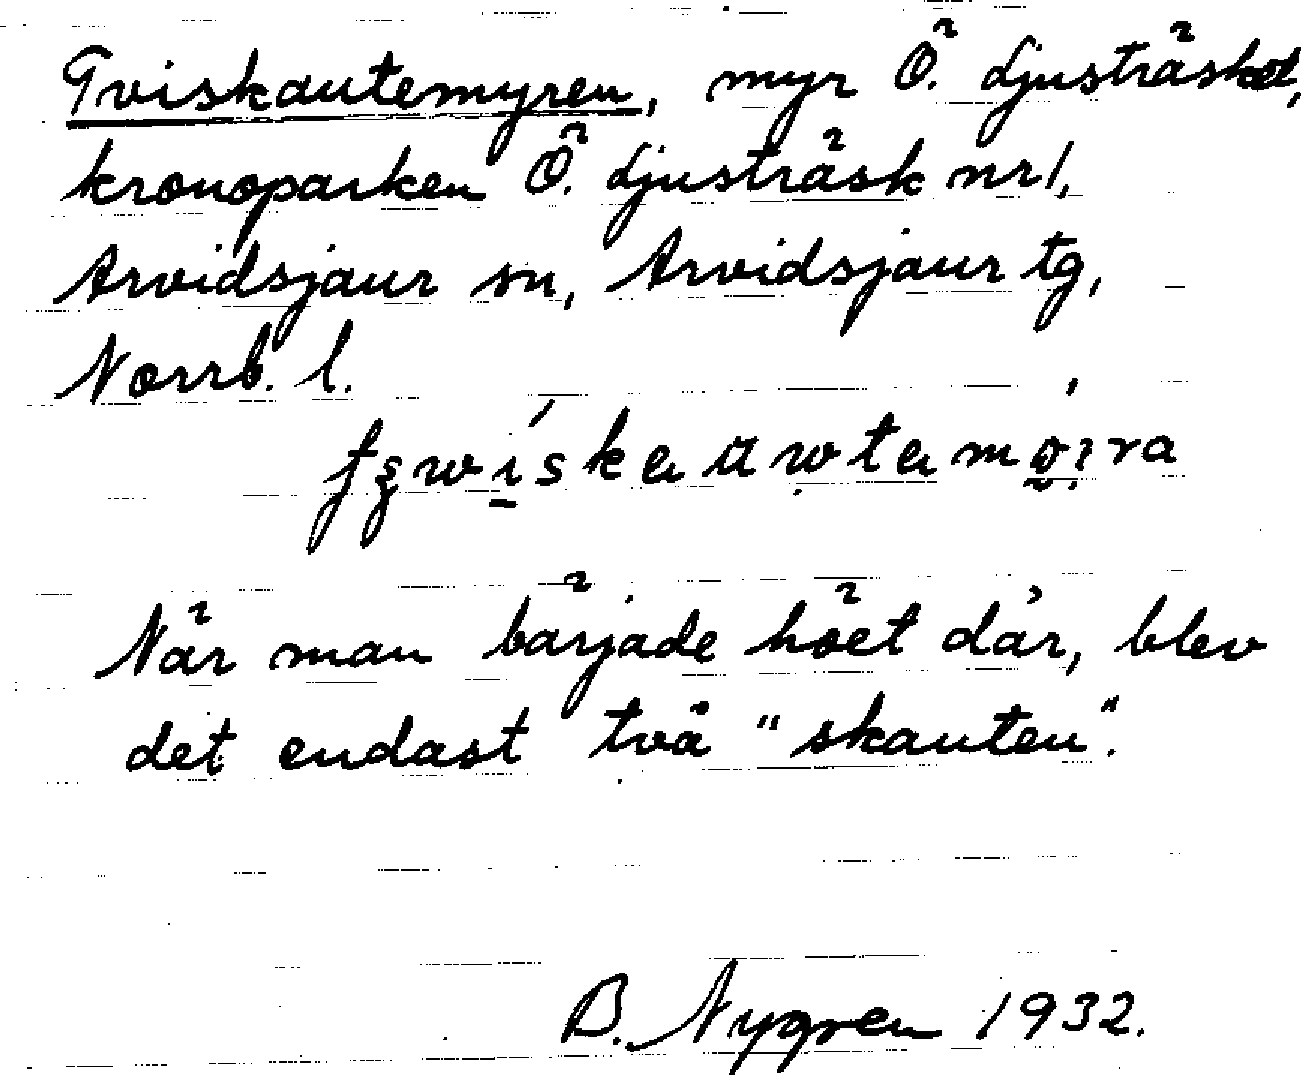 Tviskautemyren, myr Ö. Ljusträsket,
kronoparken Ö. Ljusträsk nr 1,
Arvidsjaur sn, Arvidsjaur tg,
Norrb. l.
När man bärjade höet där, blev
det endast två "skauten".
B. Nygren 1932.